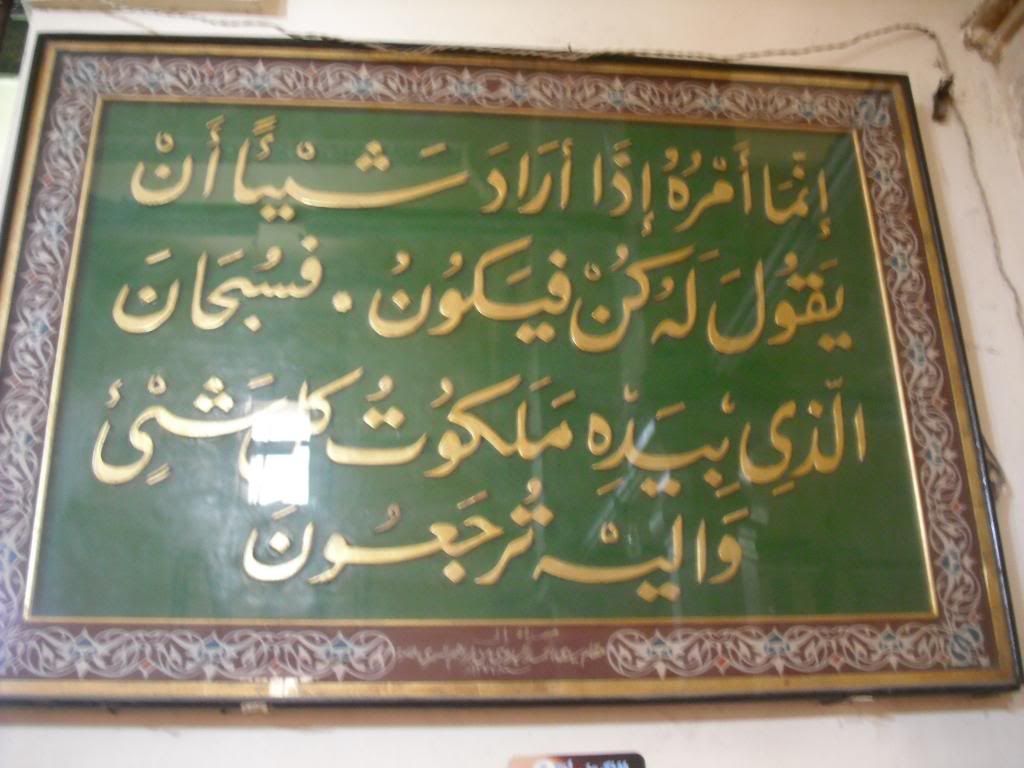 إِنَّمَا أَمْرُهُ إِذَا أَرَادَ شَيْئًا أَنْ
يَقُولَ لَهُ كُنْ فَيَكُونُ . فَسُبْحَانَ
الَّذِي بِيَدِهِ مَلَكُوتُ كُلِّ شَيْئٍ
وَإِلَيْهِ تُرْجَعُونَ